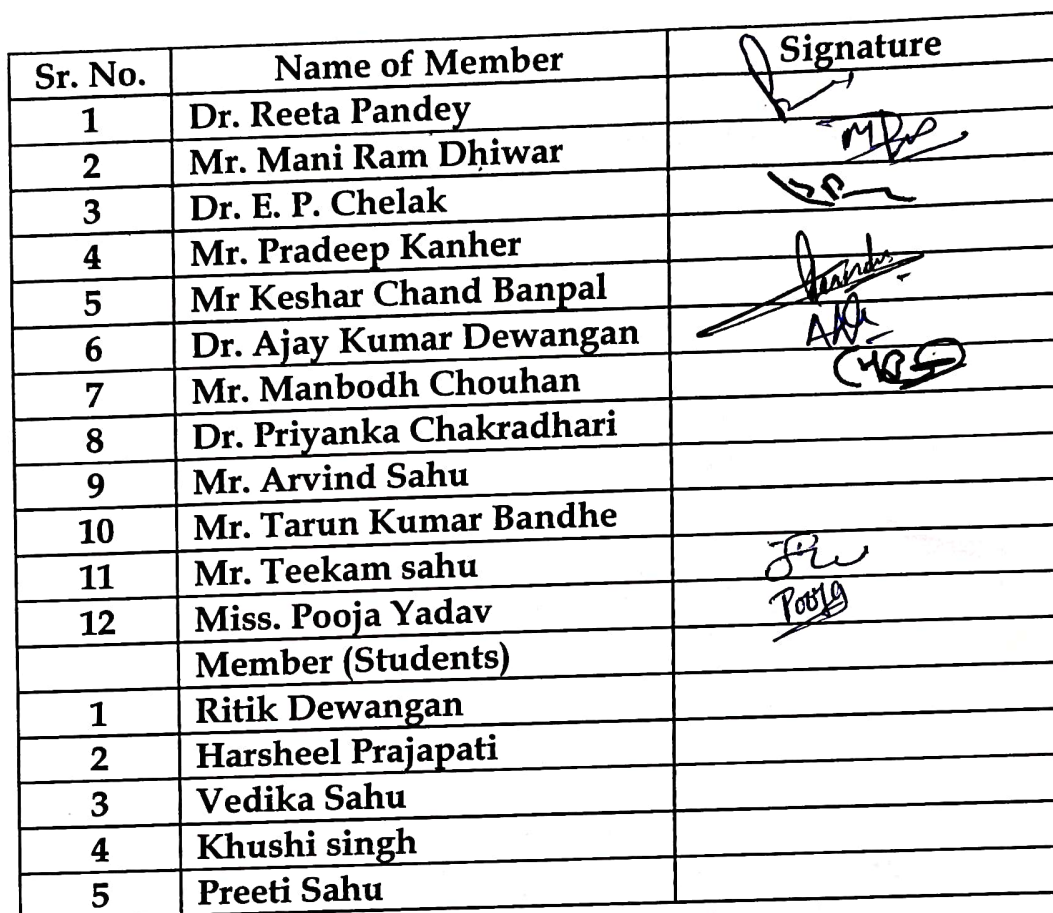 Sr. No. Name of Member Signature
1 Dr. Reeta Pandey
2 Mr. Mani Ram Dhiwar
3 Dr. E. P. Chelak
4 Mr. Pradeep Kanher
5 Mr Keshar Chand Banpal
6 Dr. Ajay Kumar Dewangan
7 Mr. Manbodh Chouhan
8 Dr. Priyanka Chakradhari
9 Mr. Arvind Sahu
10 Mr. Tarun Kumar Bandhe
11 Mr. Teekam sahu
12 Miss. Pooja Yadav Pooja
Member (Students)
1 Ritik Dewangan
2 Harsheel Prajapati
3 Vedika Sahu
4 Khushi singh
5 Preeti Sahu